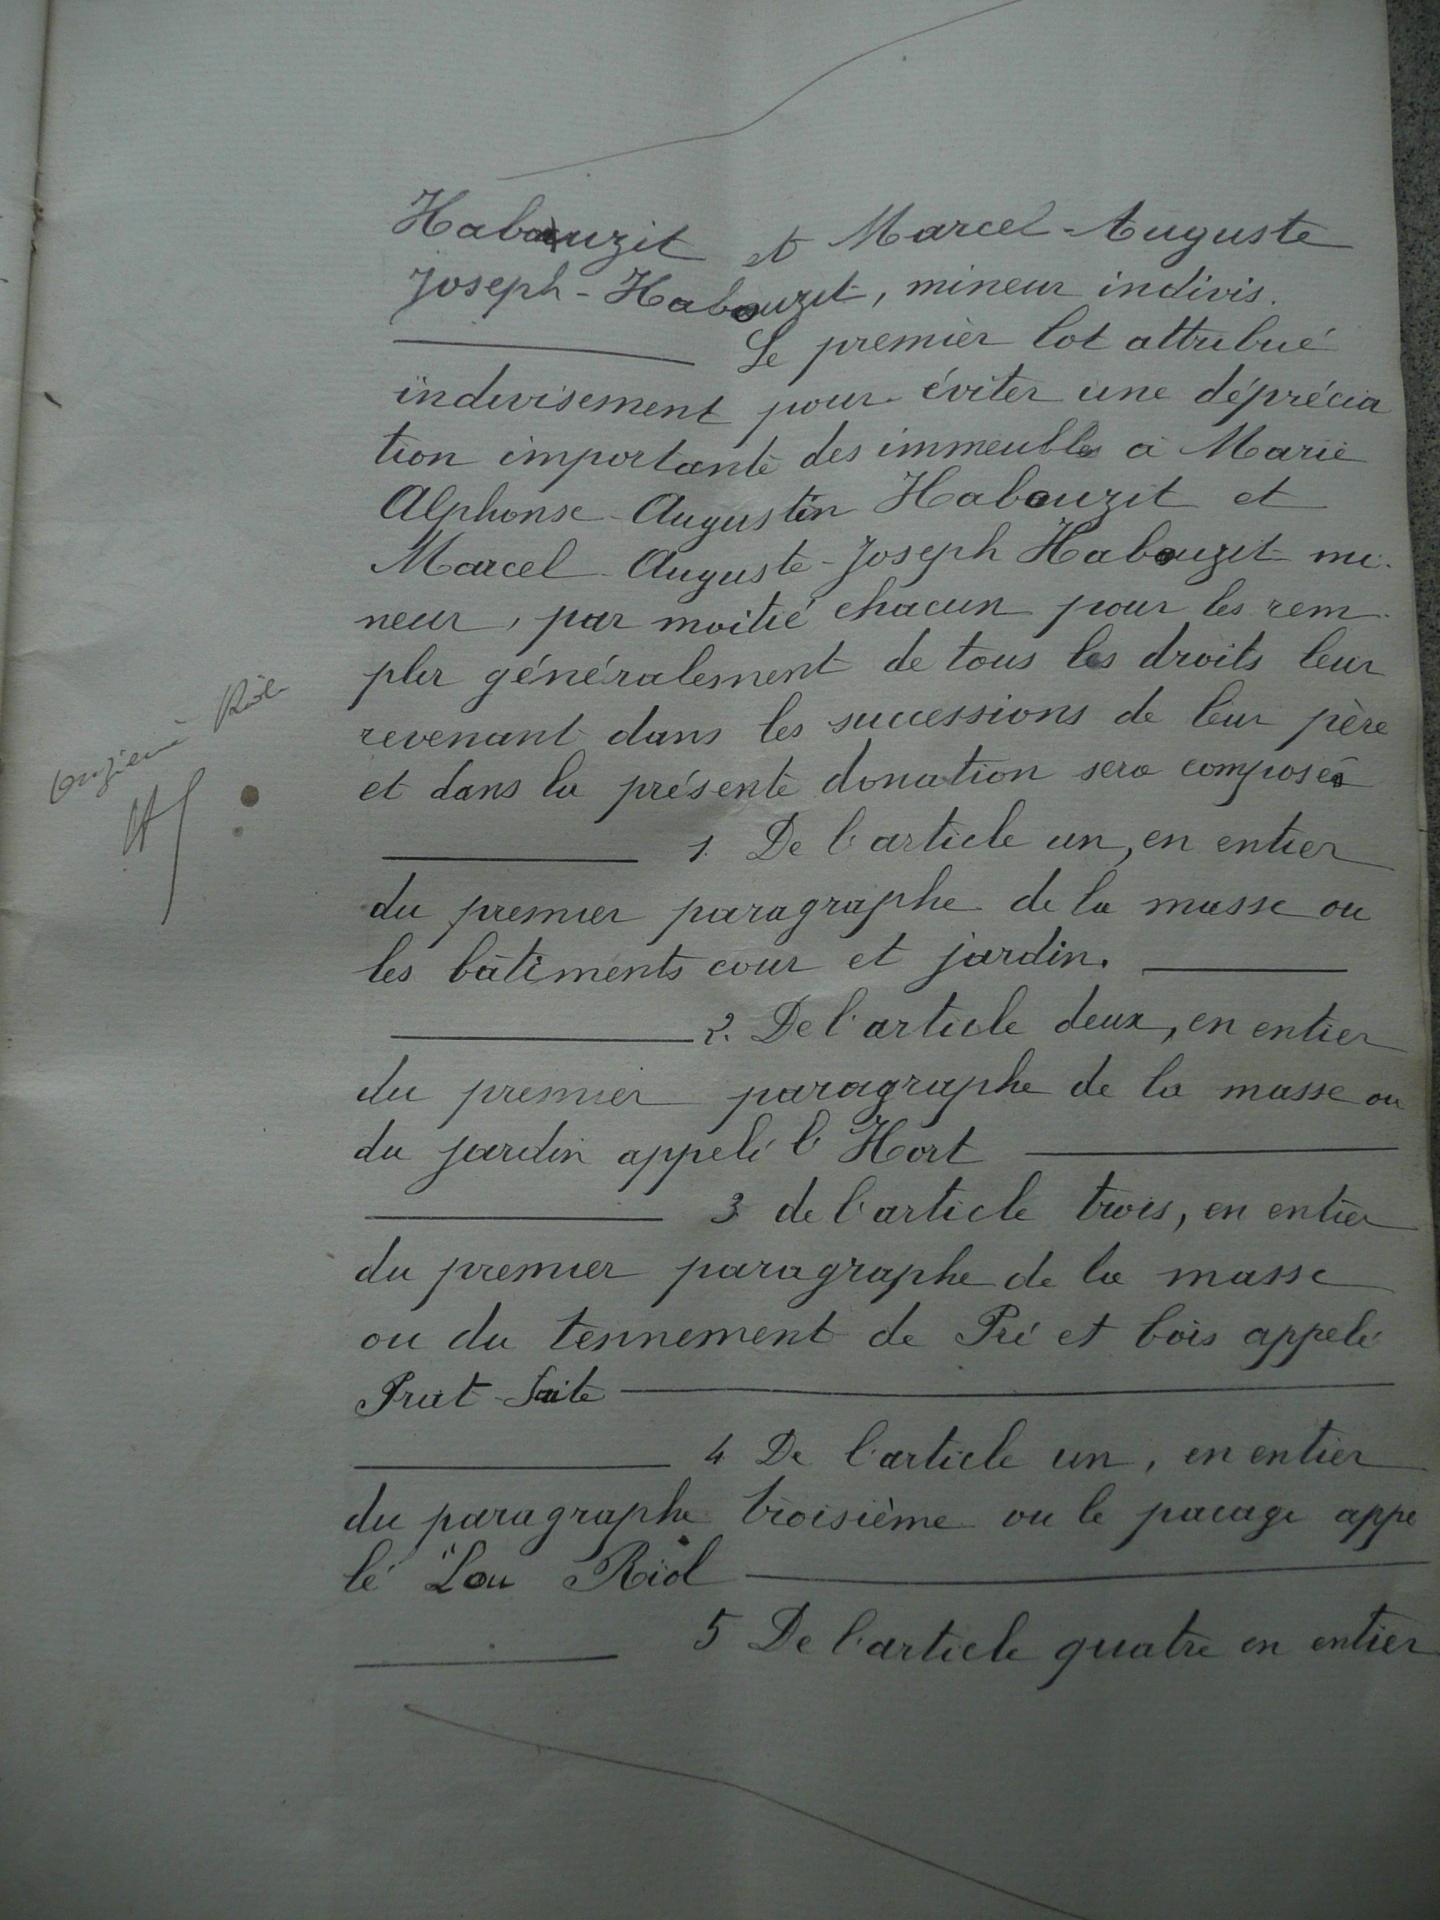 Habouzit et Marcel-Auguste
Joseph-Habouzit, mineur indivis.
Le premier lot attribué
indivisement pour éviter une déprécia
tion importante des immeubles à Marie
Alphonse-Augustin Habouzit et
Marcel-Auguste-Joseph Habouzit mi-
neur, par moitié chacun pour les rem-
plir généralement de tous les droits leur
revenant dans les successions de leur père
et dans la présente donation sera composé
1. De l'article un, en entier
du premier paragraphe de la masse ou
les bâtiments cour et jardin.
2. De l'article deux, en entier
du premier paragraphe de la masse ou
du jardin appelé l'Hort
3 de l'article trois, en entier
du premier paragraphe de la masse
ou du tennement de Pré et bois appelé
Prat
4 De l'article un, en entier
du paragraphe troisième ou le pacage appe
lé "Lou Riol
5 De l'article quatre en entier
onzième Rôle